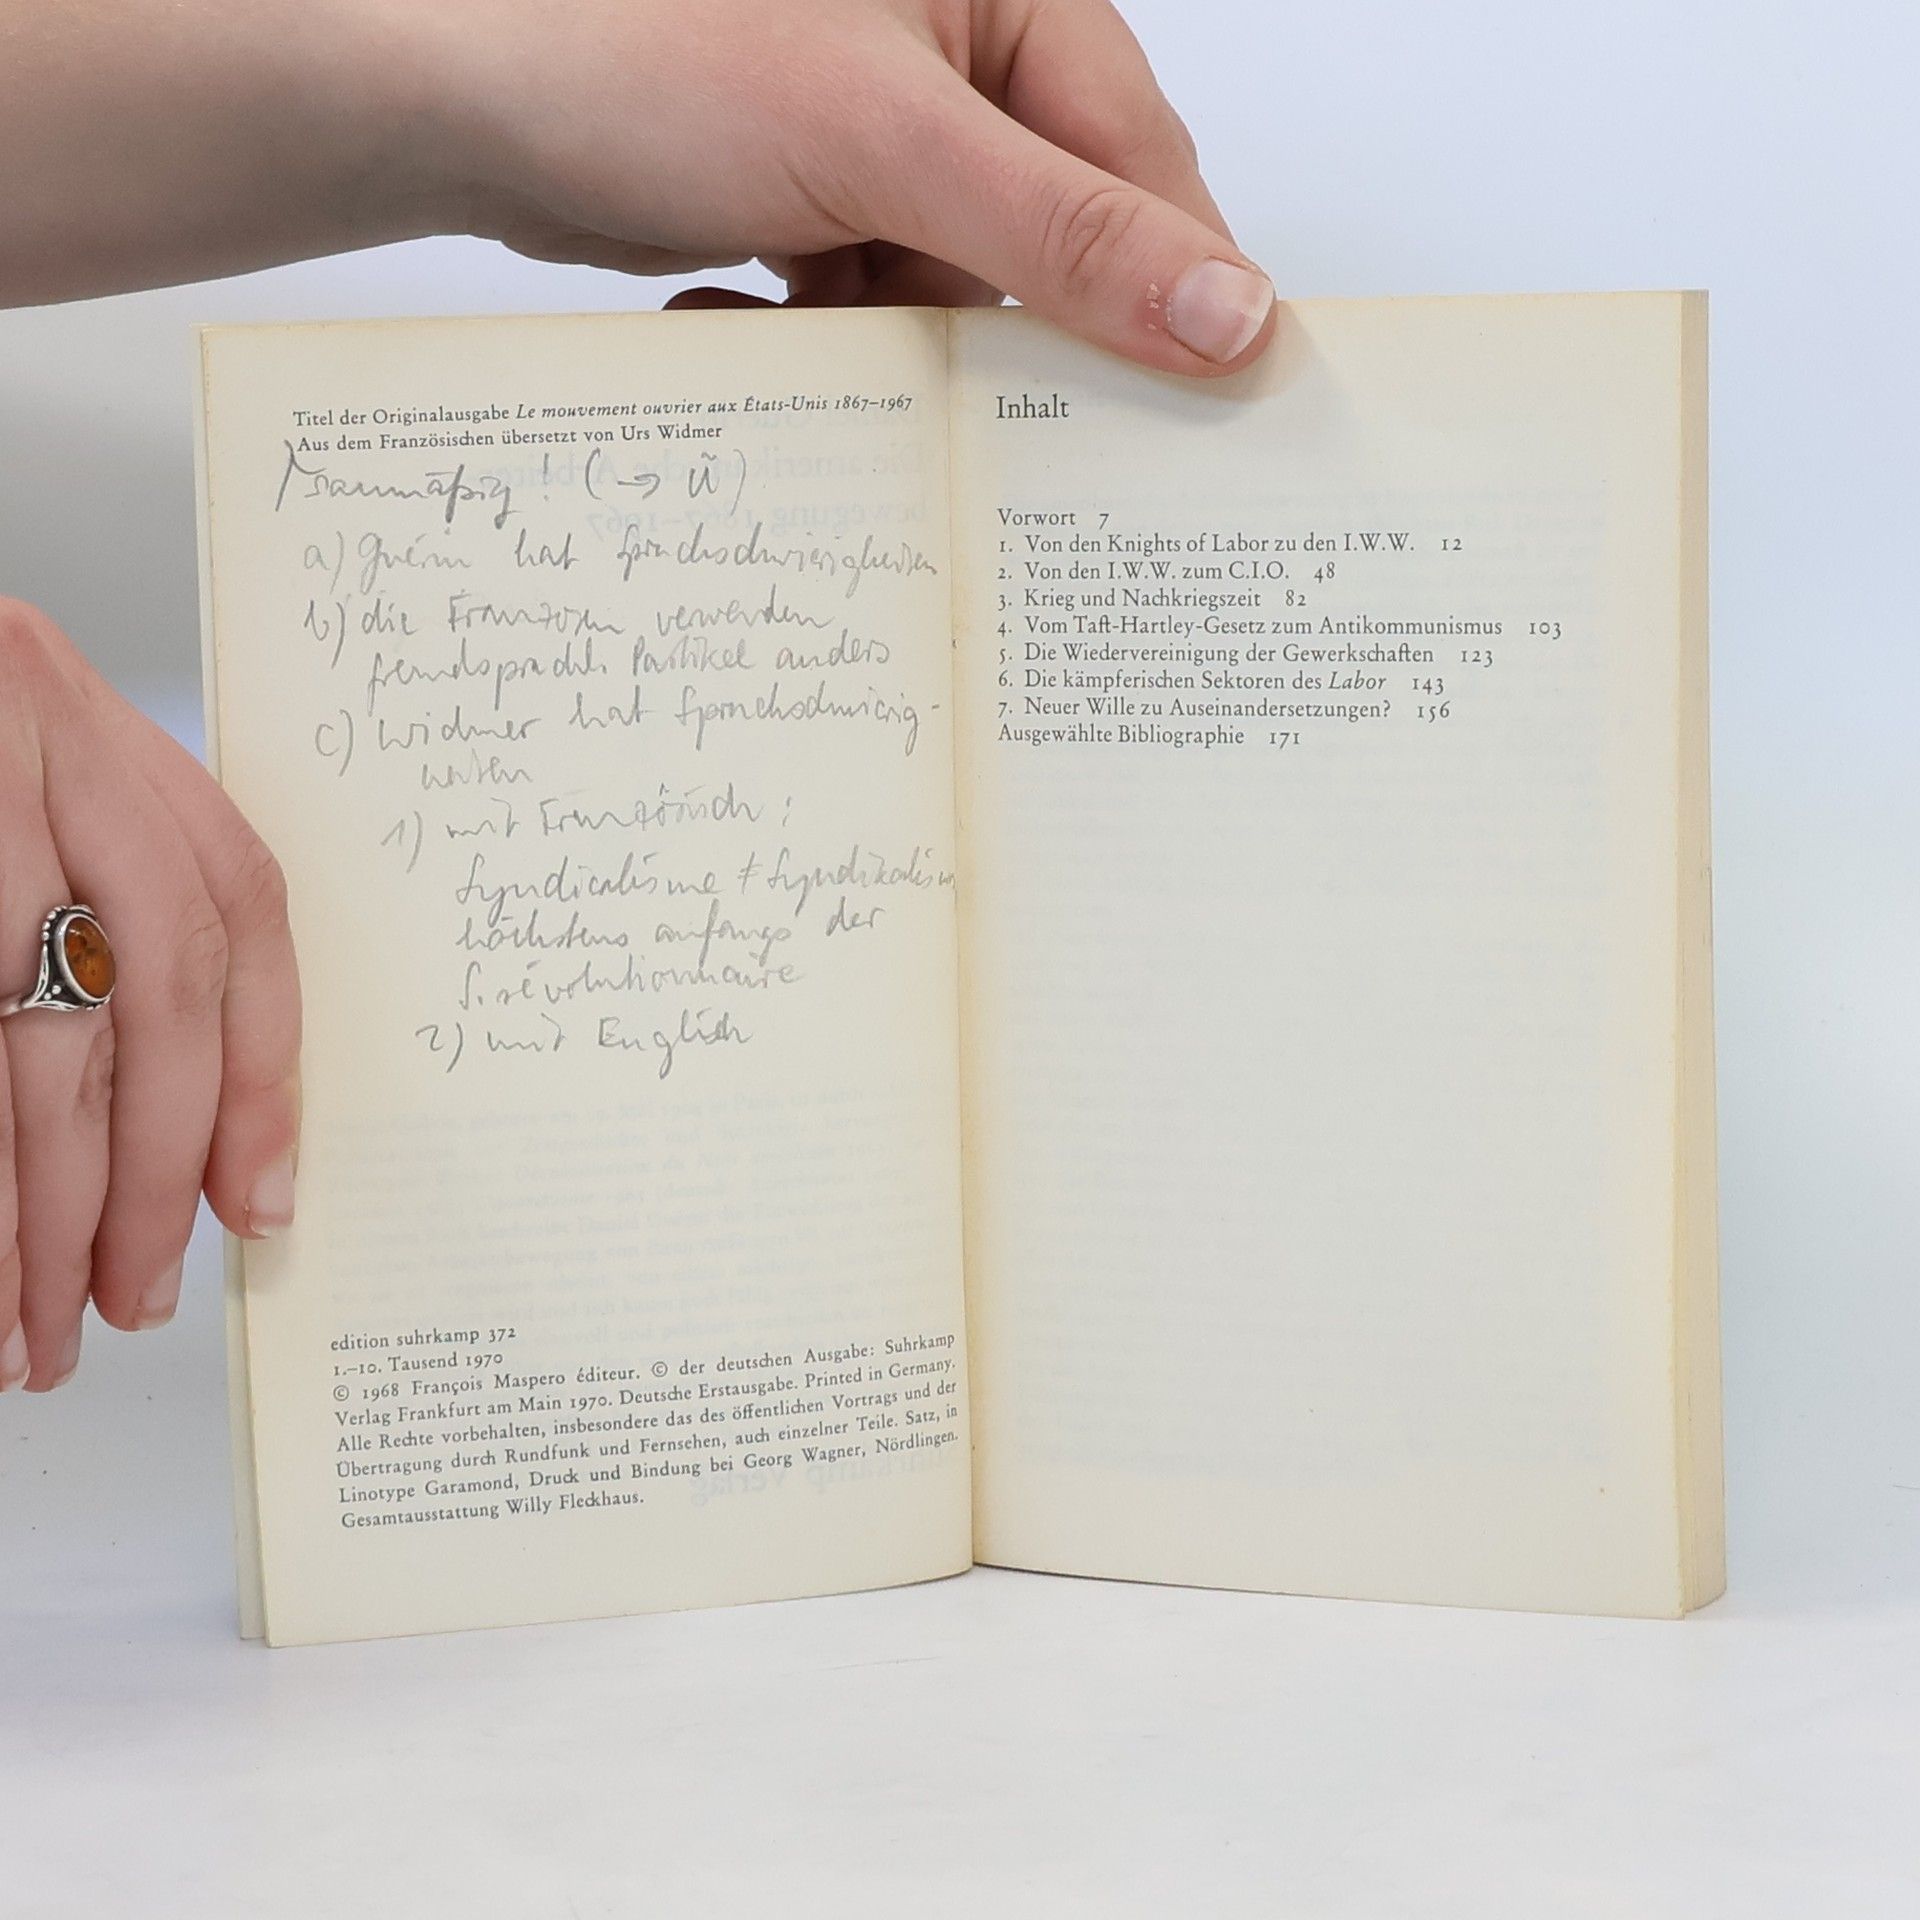 Titel der Originalausgabe Le mouvement ouvrier aux États-Unis 1867–1967
Aus dem Französischen übersetzt von Urs Widmer
saumäßig! (→ Ü)
a) Guérin hat Sprachschwierigkeiten
b) die Franzosen verwenden
fremdsprachl. Partikel anders
c) Widmer hat Sprachschwierig-
keiten
1) mit Französisch:
Syndicalisme ≠ Syndikalism
höchstens anfangs der
S. révolutionnaire
2) mit Englisch
edition suhrkamp 372
1.–10. Tausend 1970
© 1968 François Maspero éditeur. © der deutschen Ausgabe: Suhrkamp
Verlag Frankfurt am Main 1970. Deutsche Erstausgabe. Printed in Germany.
Alle Rechte vorbehalten, insbesondere das des öffentlichen Vortrags und der
Übertragung durch Rundfunk und Fernsehen, auch einzelner Teile. Satz, in
Linotype Garamond, Druck und Bindung bei Georg Wagner, Nördlingen.
Gesamtausstattung Willy Fleckhaus.
Inhalt
Vorwort 7
1. Von den Knights of Labor zu den I.W.W. 12
2. Von den I.W.W. zum C.I.O. 48
3. Krieg und Nachkriegszeit 82
4. Vom Taft-Hartley-Gesetz zum Antikommunismus 103
5. Die Wiedervereinigung der Gewerkschaften 123
6. Die kämpferischen Sektoren des Labor 143
7. Neuer Wille zu Auseinandersetzungen? 156
Ausgewählte Bibliographie 171